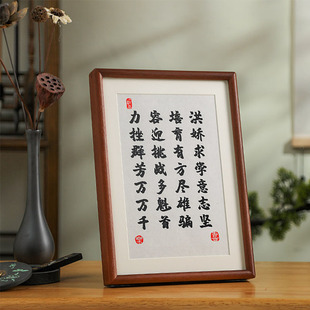 洪娇求学意志坚
培育有方尽雄骗
容迎挑战多魁首
力挫群芳万万千